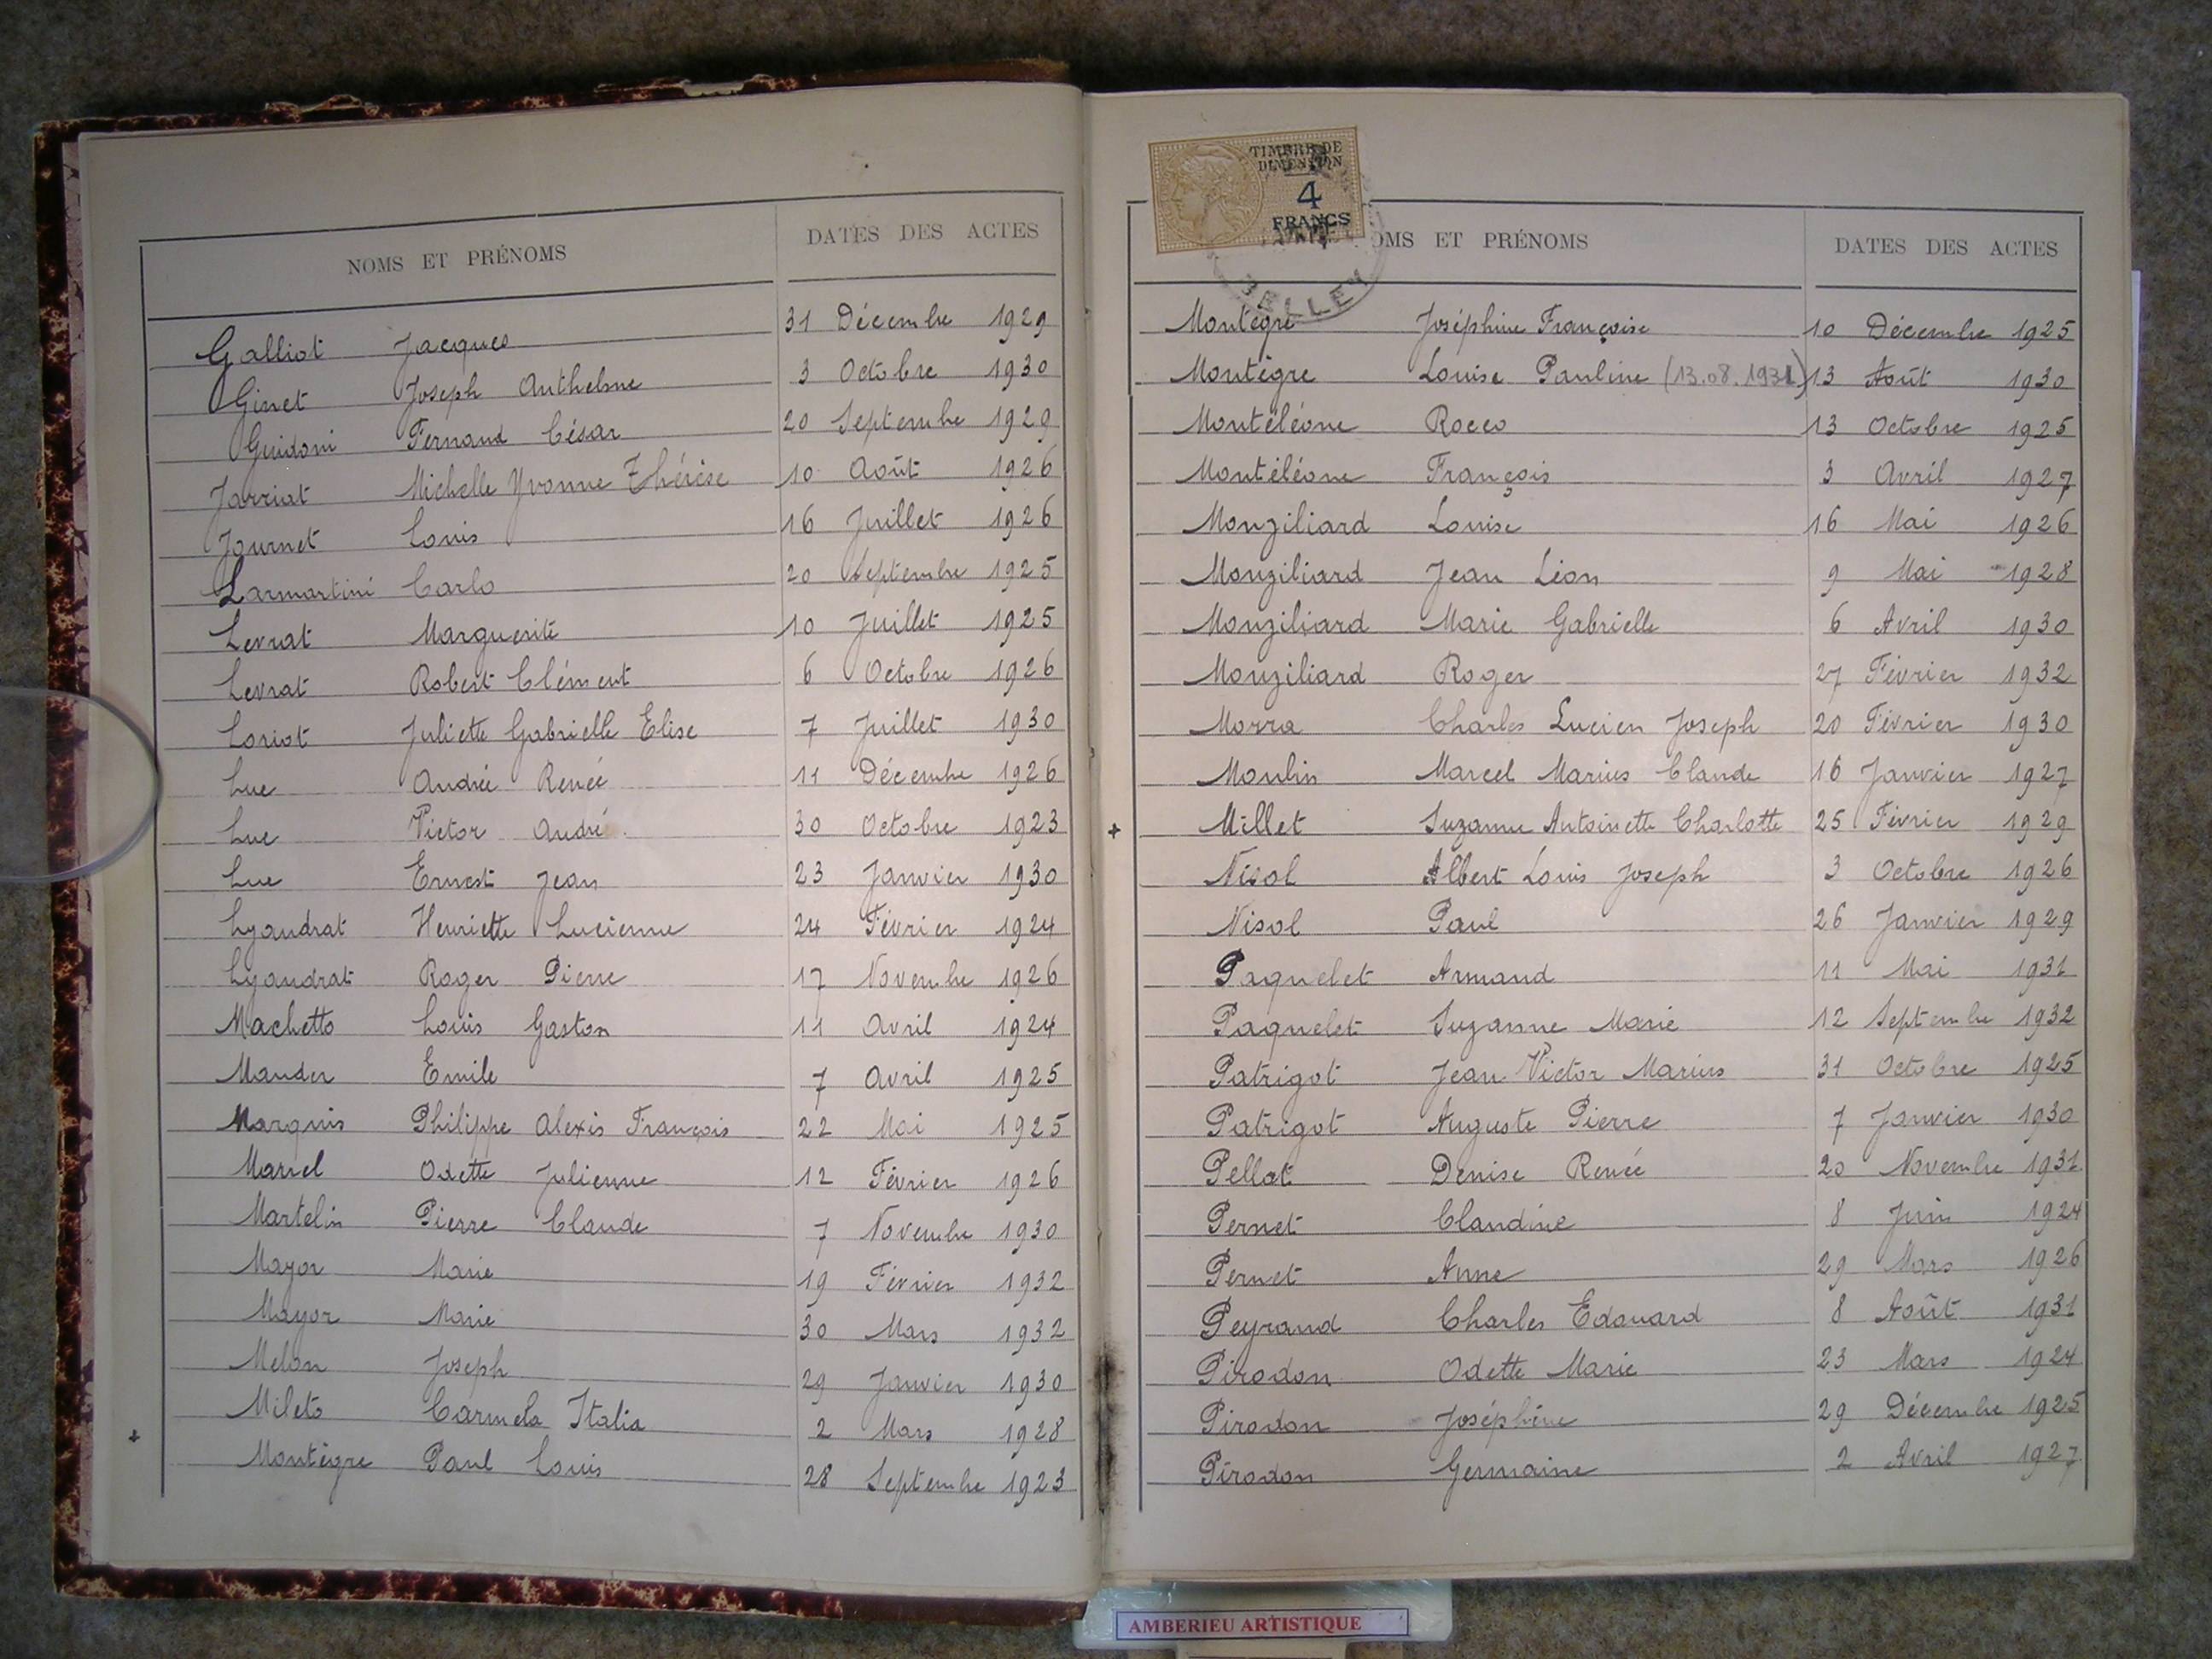 NOMS ET PRÉNOMS DATES DES ACTES
Galliot Jacques 31 Décembre 1929
Ginet Joseph Anthelme 3 Octobre 1930
Guidoni Fernand César 20 Septembre 1929
Jarriat Michelle Yvonne Thérèse 10 Août 1926
Journet Louis 16 Juillet 1926
Larmartini Carlo 20 Septembre 1925
Levrat Marguerite 10 Juillet 1925
Levrat Robert Clément 6 Octobre 1926
Loriot Juliette Gabrielle Elise 7 Juillet 1930
Luc Andrée Renée 11 Décembre 1926
Luc Victor André 30 Octobre 1923
Luc Ernest Jean 23 Janvier 1930
Lyaudrat Henriette Lucienne 24 Février 1924
Lyaudrat Roger Pierre 17 Novembre 1926
Machetto Louis Gaston 11 Avril 1924
Mander Emile 7 Avril 1925
Marquis Philippe Alexis François 22 Mai 1925
Martel Odette Julienne 12 Février 1926
Martelin Pierre Claude 7 Novembre 1930
Mayor Marie 19 Février 1932
Mayor Marie 30 Mars 1932
Melon Joseph 29 Janvier 1930
Mileto Carmela Italia 2 Mars 1928
+ Montègre Paul Louis 28 Septembre 1923
TIMBRE DE
DIMENSION
4
FRANCS
BELLEY
OMS ET PRÉNOMS DATES DES ACTES
Montègre Joséphine Françoise 10 Décembre 1925
Montègre Louise Pauline (13.08.1931) 13 Août 1930
Montéléone Rocco 13 Octobre 1925
Montéléone François 3 Avril 1927
Monziliard Louise 16 Mai 1926
Monziliard Jean Léon 9 Mai 1928
Monziliard Marie Gabrielle 6 Avril 1930
Monziliard Roger 27 Février 1932
Morra Charles Lucien Joseph 20 Février 1930
Moulin Marcel Marius Claude 16 Janvier 1927
+ Millet Suzanne Antoinette Charlotte 25 Février 1929
Nisol Albert Louis Joseph 3 Octobre 1926
Nisol Paul 26 Janvier 1929
Paquelet Armand 11 Mai 1931
Paquelet Suzanne Marie 12 Septembre 1932
Patrigot Jean Victor Marius 31 Octobre 1925
Patrigot Auguste Pierre 7 Janvier 1930
Pellat Denise Renée 20 Novembre 1931
Pernet Claudine 8 Juin 1924
Pernet Anne 29 Mars 1926
Peyraud Charles Edouard 8 Août 1931
Pirodon Odette Marie 23 Mars 1924
Pirodon Joséphine 29 Décembre 1925
Pirodon Germaine 2 Avril 1927
AMBERIEU ARTISTIQUE